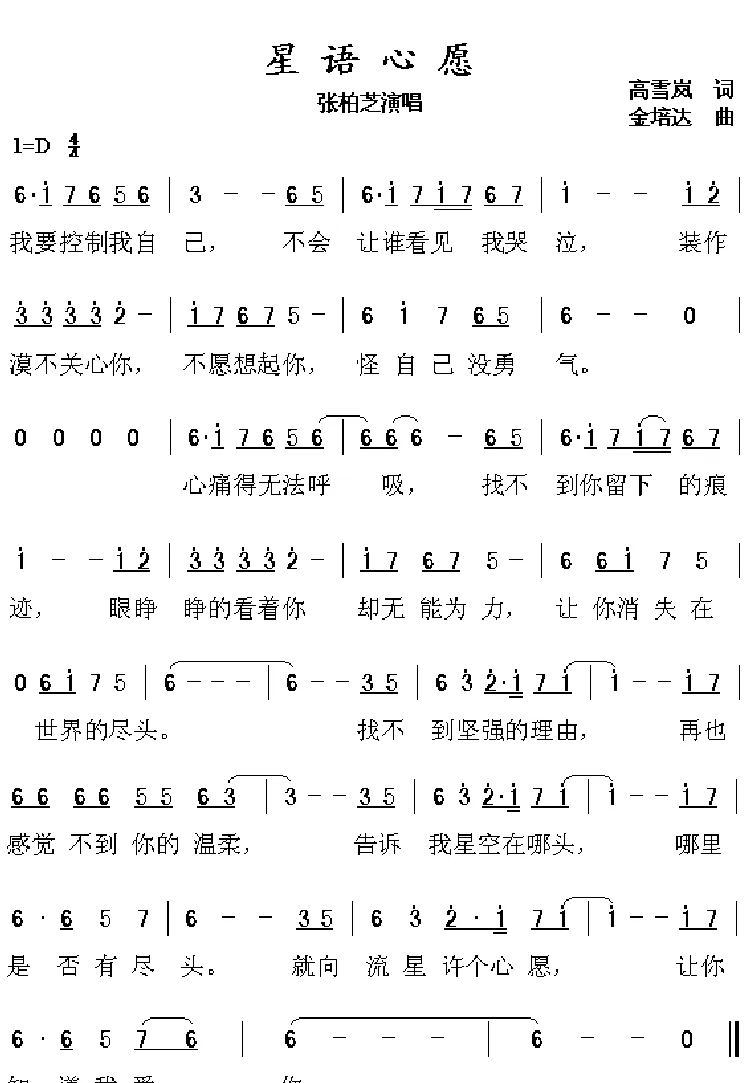 星语心愿
张柏芝演唱
高雪岚 词
金培达 曲
1=D 4/4
6·i 7 6 5 6 | 3 - - 6 5 | 6·i 7 i 7 6 7 | i - - i 2̇ |
我要控制我自 己， 不会 让谁看见 我哭 泣， 装作
3̇ 3̇ 3̇ 3̇ 2̇ - | i 7 6 7 5 - | 6 i 7 6 5 | 6 - - 0 |
漠不关心你， 不愿想起你， 怪 自 己 没勇 气。
0 0 0 0 | 6·i 7 6 5 6 | 6 6 6 - 6 5 | 6·i 7 i 7 6 7 |
心痛得无法呼 吸， 找不 到你留下 的痕
i - - i 2̇ | 3̇ 3̇ 3̇ 3̇ 2̇ - | i 7 6 7 5 - | 6 6 i 7 5 |
迹， 眼睁 睁的看着你 却无 能为 力， 让 你消 失 在
0 6 i 7 5 | 6 - - - | 6 - - 3 5 | 6 3̇ 2̇·i 7 i | i - - i 7 |
世界的尽头。 找不 到坚强的理由， 再也
6 6 6 6 5 5 6 3 | 3 - - 3 5 | 6 3̇ 2̇·i 7 i | i - - i 7 |
感觉 不到 你的 温柔， 告诉 我星空在哪头， 哪里
6 · 6 5 7 | 6 - - 3 5 | 6 3̇ 2̇ · i 7 i | i - - i 7 |
是 否 有 尽 头。 就向 流 星 许个心 愿， 让你
6 · 6 5 7 6 | 6 - - - | 6 - - 0 ‖
知 道 我 爱 你